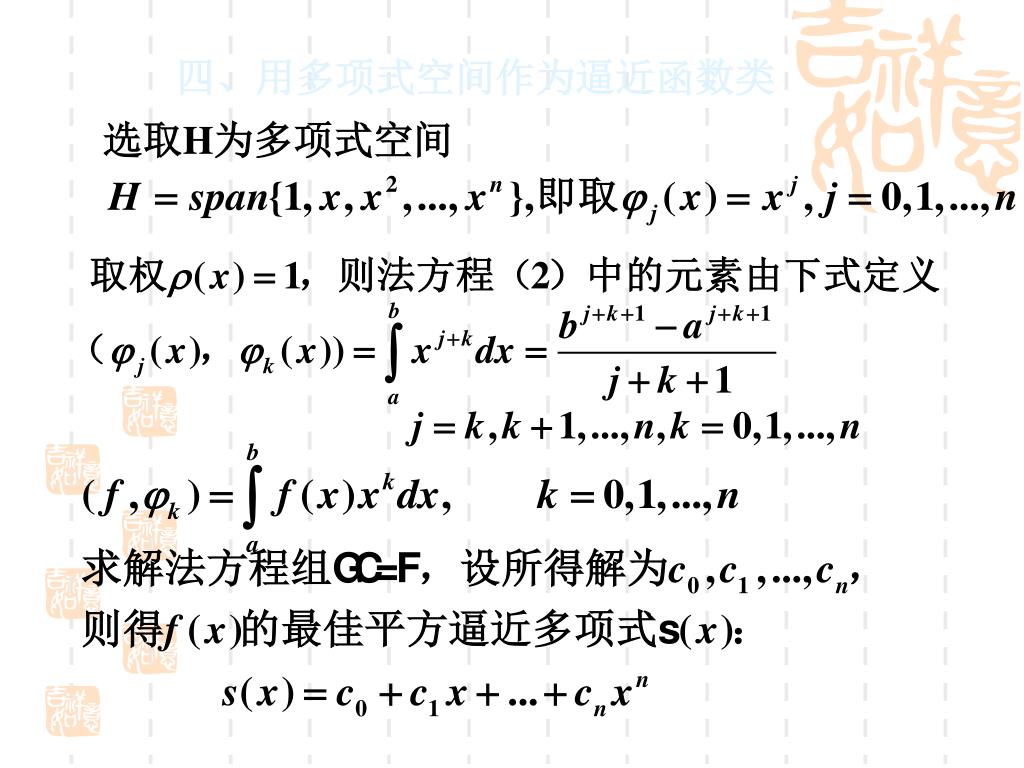 四、用多项式空间作为逼近函数类
选取H为多项式空间
H = span{1, x, x^2, ..., x^n}, 即取φ_j(x) = x^j, j = 0,1,...,n
取权ρ(x) = 1，则法方程（2）中的元素由下式定义
（φ_j(x)，φ_k(x)) = ∫_a^b x^{j+k} dx = \frac{b^{j+k+1} - a^{j+k+1}}{j+k+1}
j = k, k+1, ..., n, k = 0,1,...,n
(f, φ_k) = ∫_a^b f(x) x^k dx, k = 0,1,...,n
求解法方程组GC=F，设所得解为c_0, c_1, ..., c_n，
则得f(x)的最佳平方逼近多项式s(x)：
s(x) = c_0 + c_1 x + ... + c_n x^n
吉祥如意
吉祥如意
吉祥如意
吉祥如意
吉祥如意
吉祥如意
吉祥如意